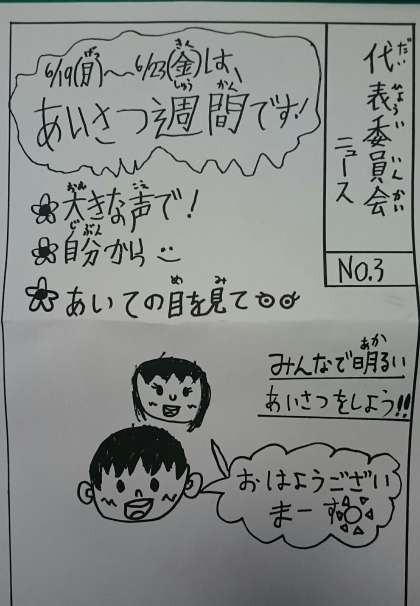 代表委員会
ニュース
No.3
6/19(月)〜6/23(金)は、
あいさつ週間です!
大きな声で!
自分から
あいての目を見て
みんなで明るい
あいさつをしよう!!
おはようござい
まーす